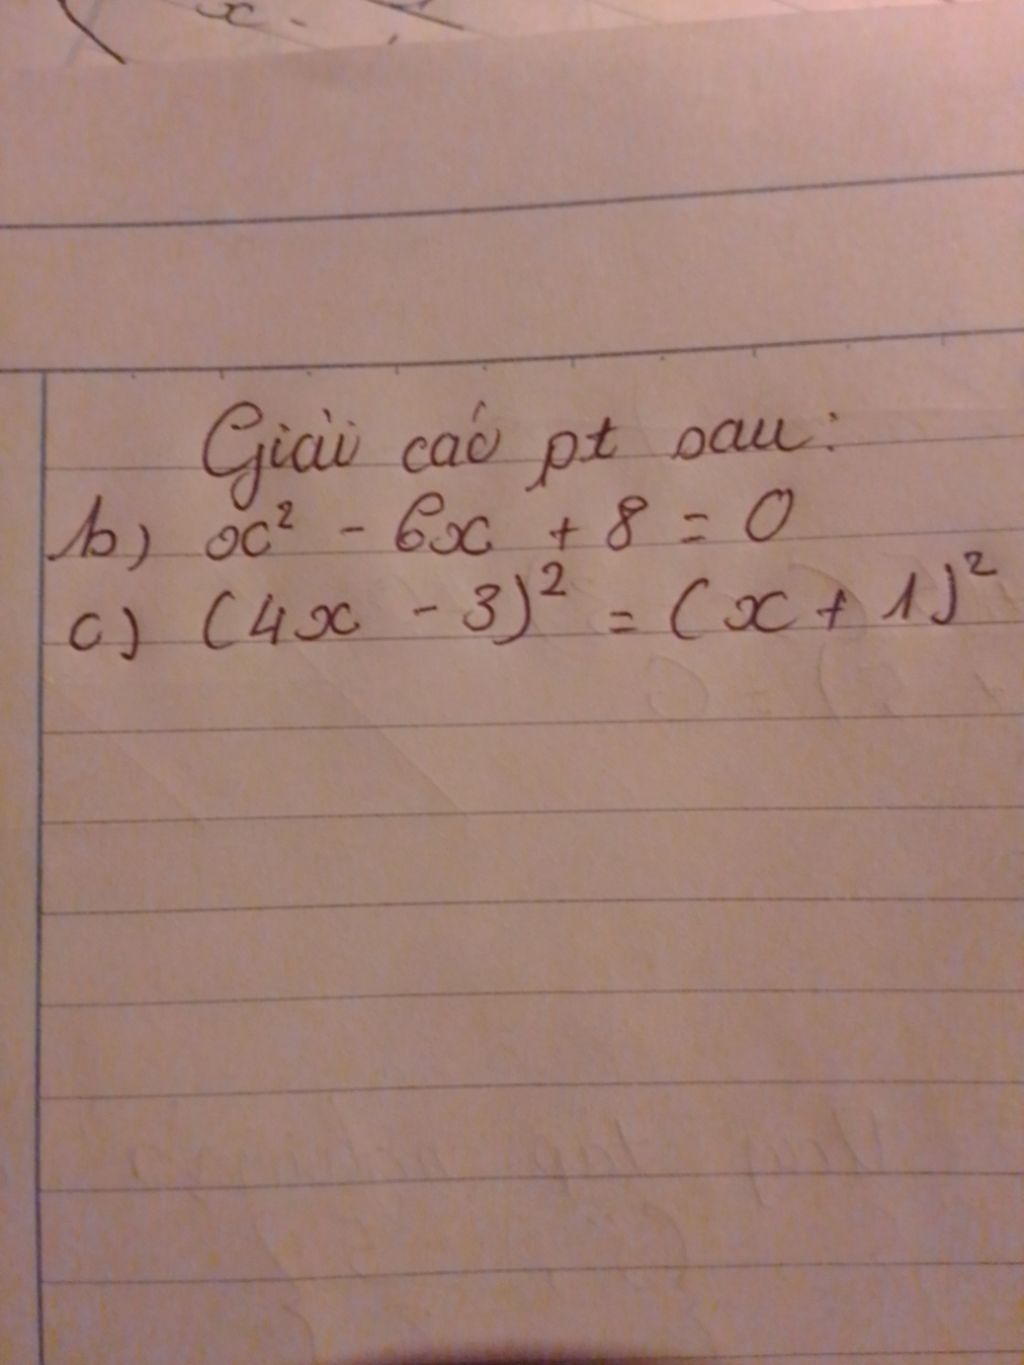 x -
Giải các pt sau:
b) x² - 6x + 8 = 0
c) (4x - 3)² = (x + 1)²